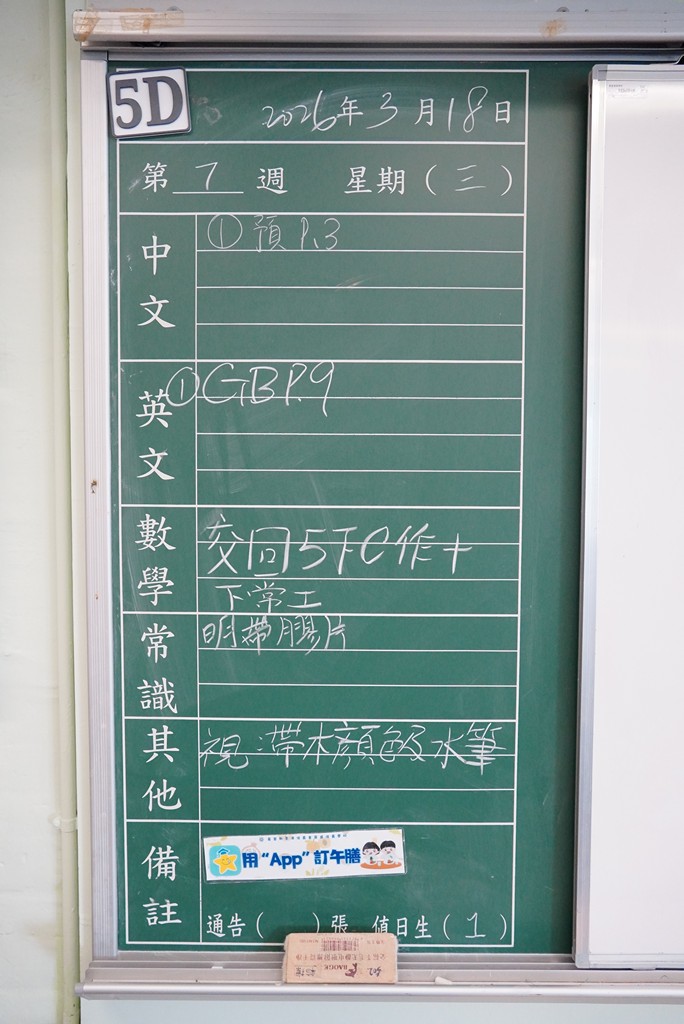 5D
2026年3月18日
第 7 週 星期(三)
中文
① 預 P.3
英文
① GB P.9
數學
交回5下C作+
下常工
常識
明帶膠片
其他
視:帶水顏色及水筆
備註
用“App”訂午膳
通告( )張 值日生(1)